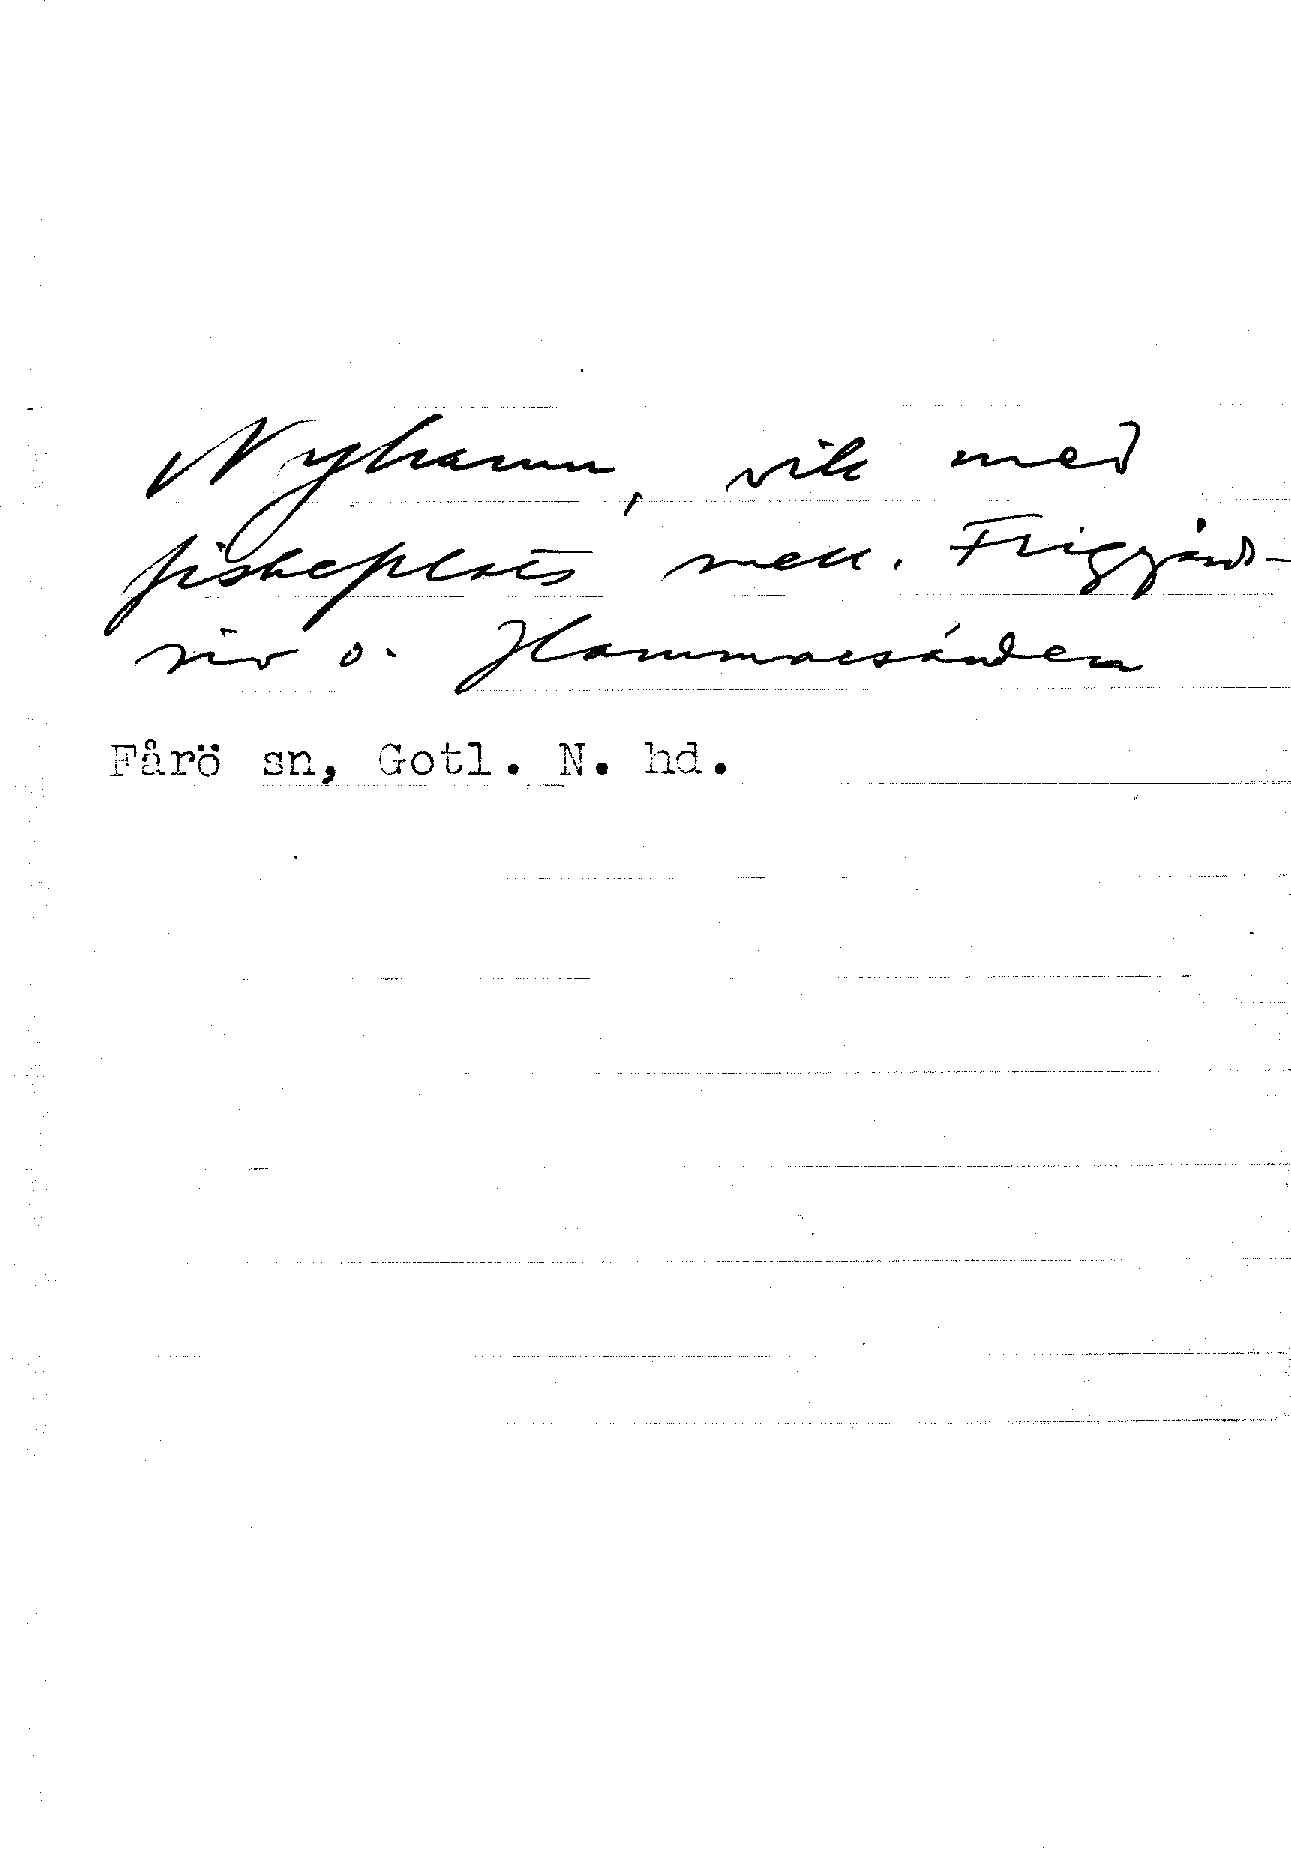 Nyhamn, vik med
fiskeplats mell. Friggårds-
niv o. Hammarsånden
Fårö sn, Gotl. N. hd.